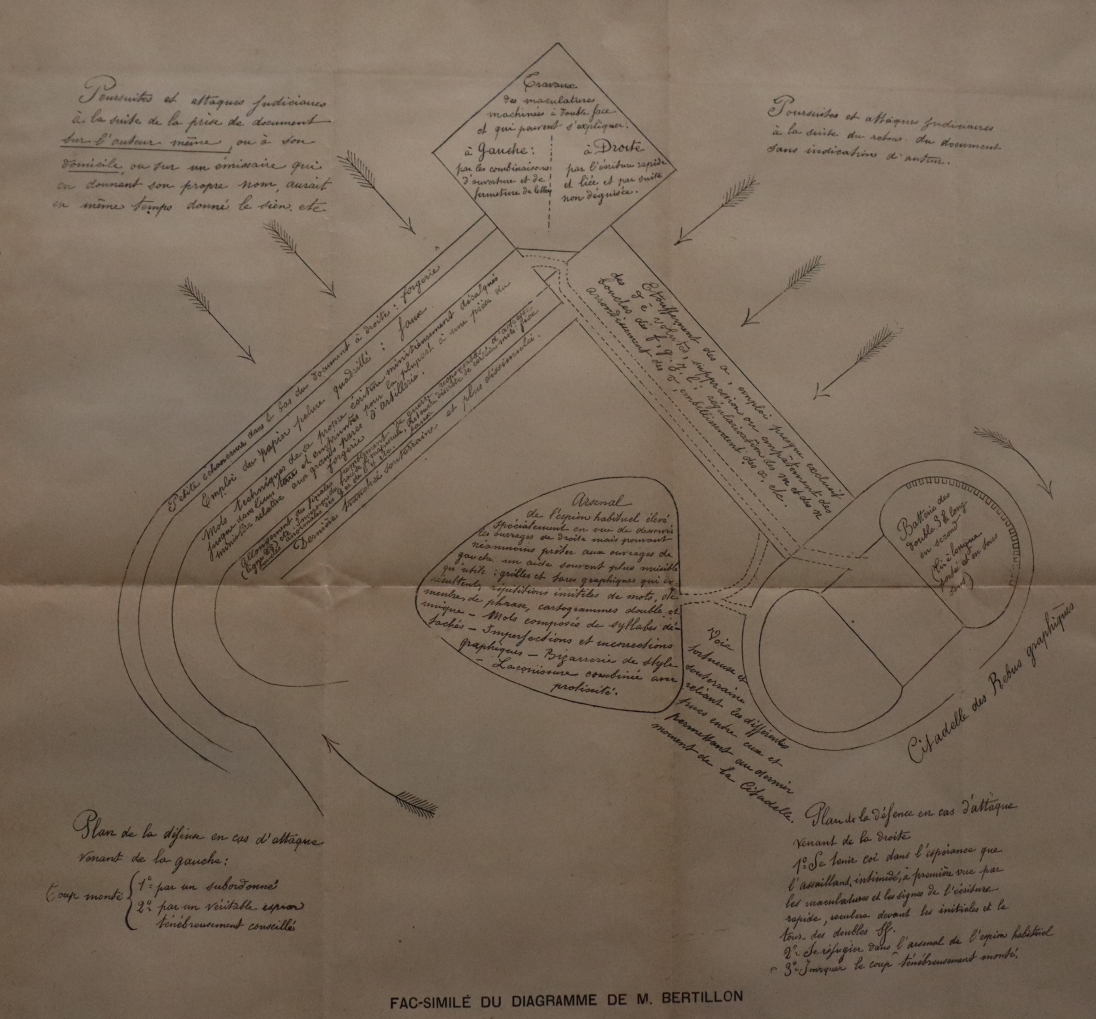 Poursuites et attaques judiciaires
à la suite de la prise de document
sur l'auteur même, ou à son
domicile, ou sur un émissaire qui
en donnant son propre nom, aurait
en même temps donné le sien, etc
Travaux
des maculatures
machinées à double face
et qui peuvent s'expliquer.
à Gauche:
par les combinaisons
d'ouverture et de
fermeture de lettre
à Droite
par l'écriture rapide
et liée et par suite
non déguisée.
Poursuites et attaque judiciaires
à la suite du rebus du document
sans indications d'auteur.
Petite échancrure dans le bas du document à droite: forgerie
Emploi du papier pelure quadrillé: faux
Mots techniques de sa propre écriture minutieusement décalqués
jusque dans leurs tares et empruntés pour la plupart à une pièce du
ministère relative aux grands parcs d'artillerie.
forgerie
Dernière tranchée souterraine et plus dissimulée.
Etouffement des a, emploi presque exclusif
des
boucles des f, g, j,
arrondissement des
embellissement des x, etc
Arsenal
de l'espion habituel élevé
spécialement en vue de desservir
les ouvrages de droite mais pouvant
néanmoins prêter aux ouvrages de
gauche un aide souvent plus nuisible
qu'utile: grilles et tares graphiques qui en
résultent, répétitions inutiles de mots, de
membres de phrase, cartogrammes double et
unique - Mots composés de syllabes dé-
tachés - Imperfections et incorrections
graphiques - Bizarrerie de style
- Laconisme combinée avec
prolixité.
Batterie des
doubles SS long
en second
Voie
tortueuse et
souterraine
reliant les différentes
pièces entre eux et
permettant au dernier
moment de la Citadelle.
Citadelle des Rebus graphiques
Plan de la défense en cas d'attaque
venant de la gauche:
Coup monté
1º par un subordonné
2º par un véritable espion
ténébreusement conseillé
Plan de la défence en cas d'attaque
venant de la droite
1º Se tenir coi dans l'espérance que
l'assaillant, intimidé, à première vue par
les maculatures et les signes de l'écriture
rapide, reculera devant les initiales et la
tour des doubles SS.
2º Se réfugier dans l'arsenal de l'espion habituel
3º Invoquer le coup ténébreusement monté.
FAC-SIMILÉ DU DIAGRAMME DE M. BERTILLON